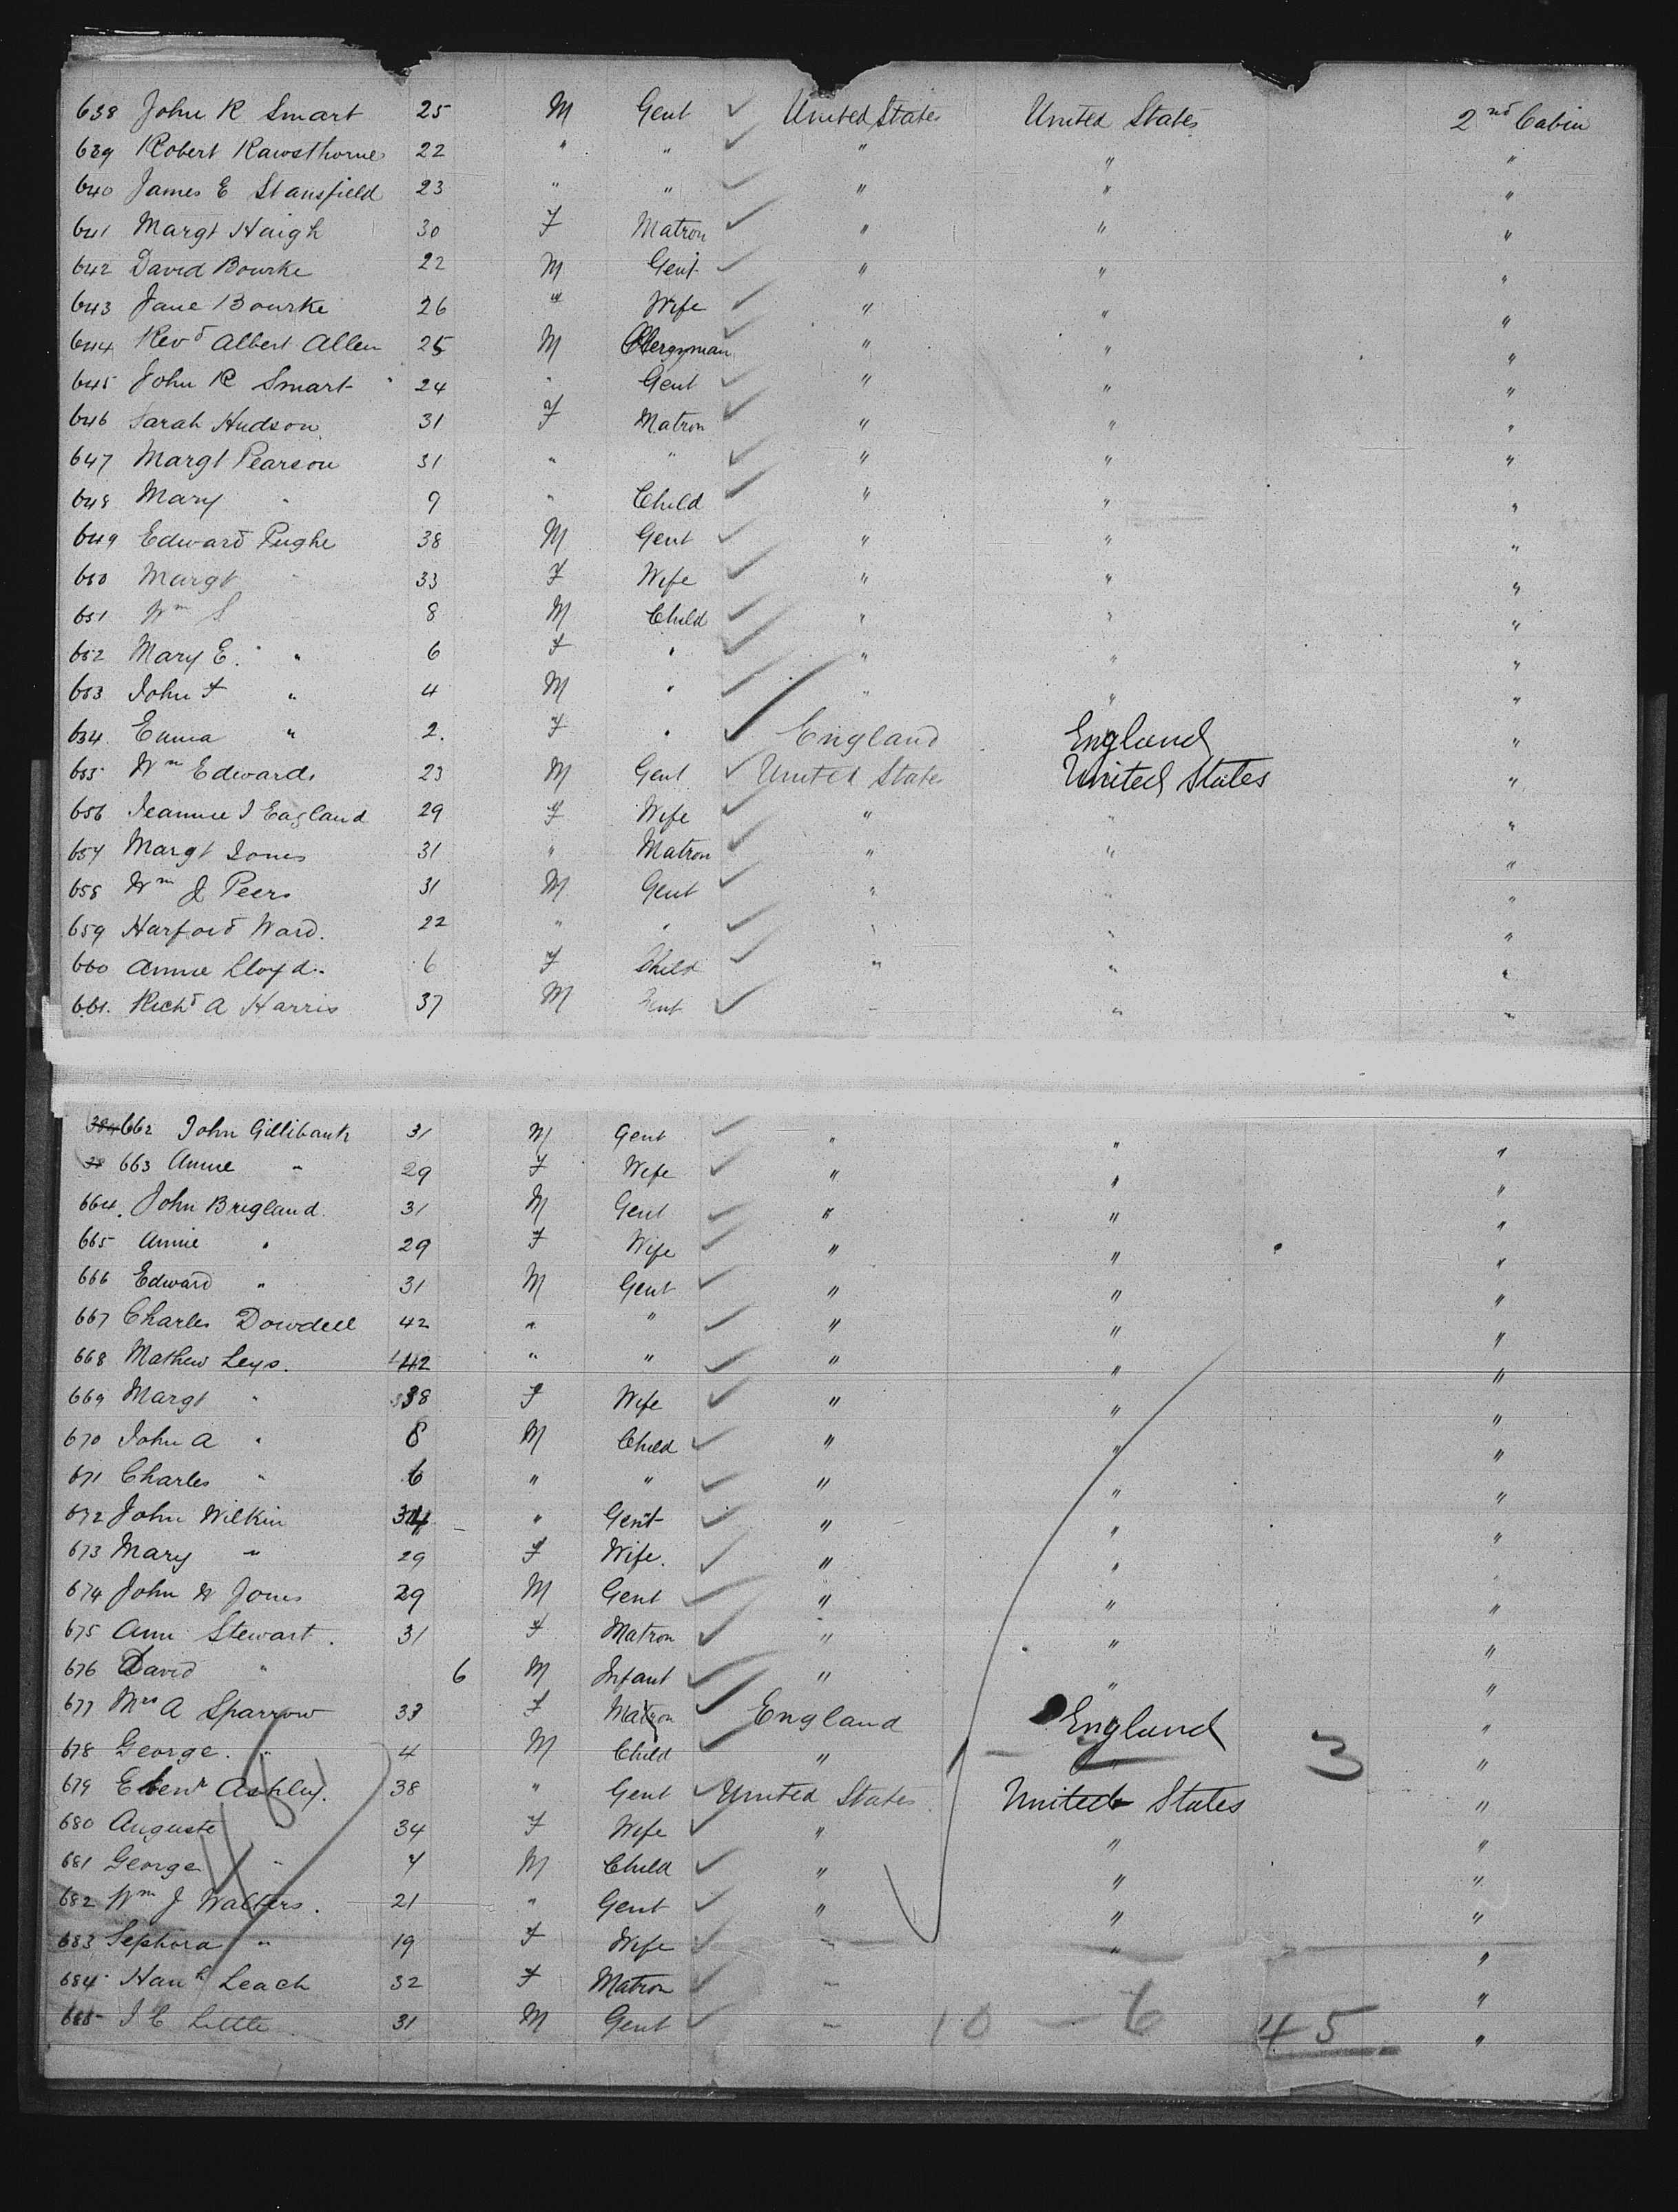 638 John R Smart 25 M Gent ✓ United States United States 2nd Cabin
639 Robert Rawsthorne 22 " " ✓ " " "
640 James E Stansfield 23 " " ✓ " " "
641 Margt Haigh 30 F Matron ✓ " " "
642 David Bourke 22 M Gent ✓ " " "
643 Jane Bourke 26 " Wife ✓ " " "
644 Revd Albert Allen 25 M Clergyman ✓ " " "
645 John R Smart 24 " Gent ✓ " " "
646 Sarah Hudson 31 F Matron ✓ " " "
647 Margt Pearson 31 " " ✓ " " "
648 Mary " 9 " Child ✓ " " "
649 Edward Pughe 38 M Gent ✓ " " "
650 Margt " 33 F Wife ✓ " " "
651 Wm S 8 M Child ✓ " " "
652 Mary E. " 6 F " ✓ " " "
653 John F " 4 M " ✓ " " "
654 Emma " 2. F " ✓ England England "
655 Wm Edwards 23 M Gent ✓ United States United States "
656 Jeannie I Eagland 29 F Wife ✓ " " "
657 Margt Jones 31 " Matron ✓ " " "
658 Wm J Peers 31 M Gent ✓ " " "
659 Harford Ward. 22 " " ✓ " " "
660 Annie Lloyd. 6 F Child ✓ " " "
661. Richd A Harris 37 M Gent ✓ " " "
662 John Gillibank 31 M Gent ✓ " " "
663 Annie " 29 F Wife ✓ " " "
664. John Brigland. 31 M Gent ✓ " " "
665 Annie " 29 F Wife ✓ " " "
666 Edward " 31 M Gent ✓ " " "
667 Charles Dowdell 42 " " ✓ " " "
668 Mathew Leys. 42 " " ✓ " " "
669 Margt " 38 F Wife ✓ " " "
670 John A " 8 M Child ✓ " " "
671 Charles " 6 " " ✓ " " "
672 John Wilkin 34 " Gent ✓ " " "
673 Mary " 29 F Wife. ✓ " " "
674 John W Jones 29 M Gent ✓ " " "
675 Ann Stewart. 31 F Matron ✓ " " "
676 David " 6 M Infant ✓ " " "
677 Mrs A Sparrow 33 F Matron ✓ England England "
678 George. " 4 M Child ✓ " " 3 "
679 Ebenr Ashley. 38 " Gent ✓ United States United States "
680 Auguste 34 F Wife ✓ " " "
681 George " 4 M Child ✓ " " "
682 Wm J Walters. 21 " Gent ✓ " " "
683 Sephora " 19 F Wife ✓ " " "
684 Hanh Leach 32 F Matron ✓ " "
685 J C Little 31 M Gent ✓ " 10 - 6 45 "